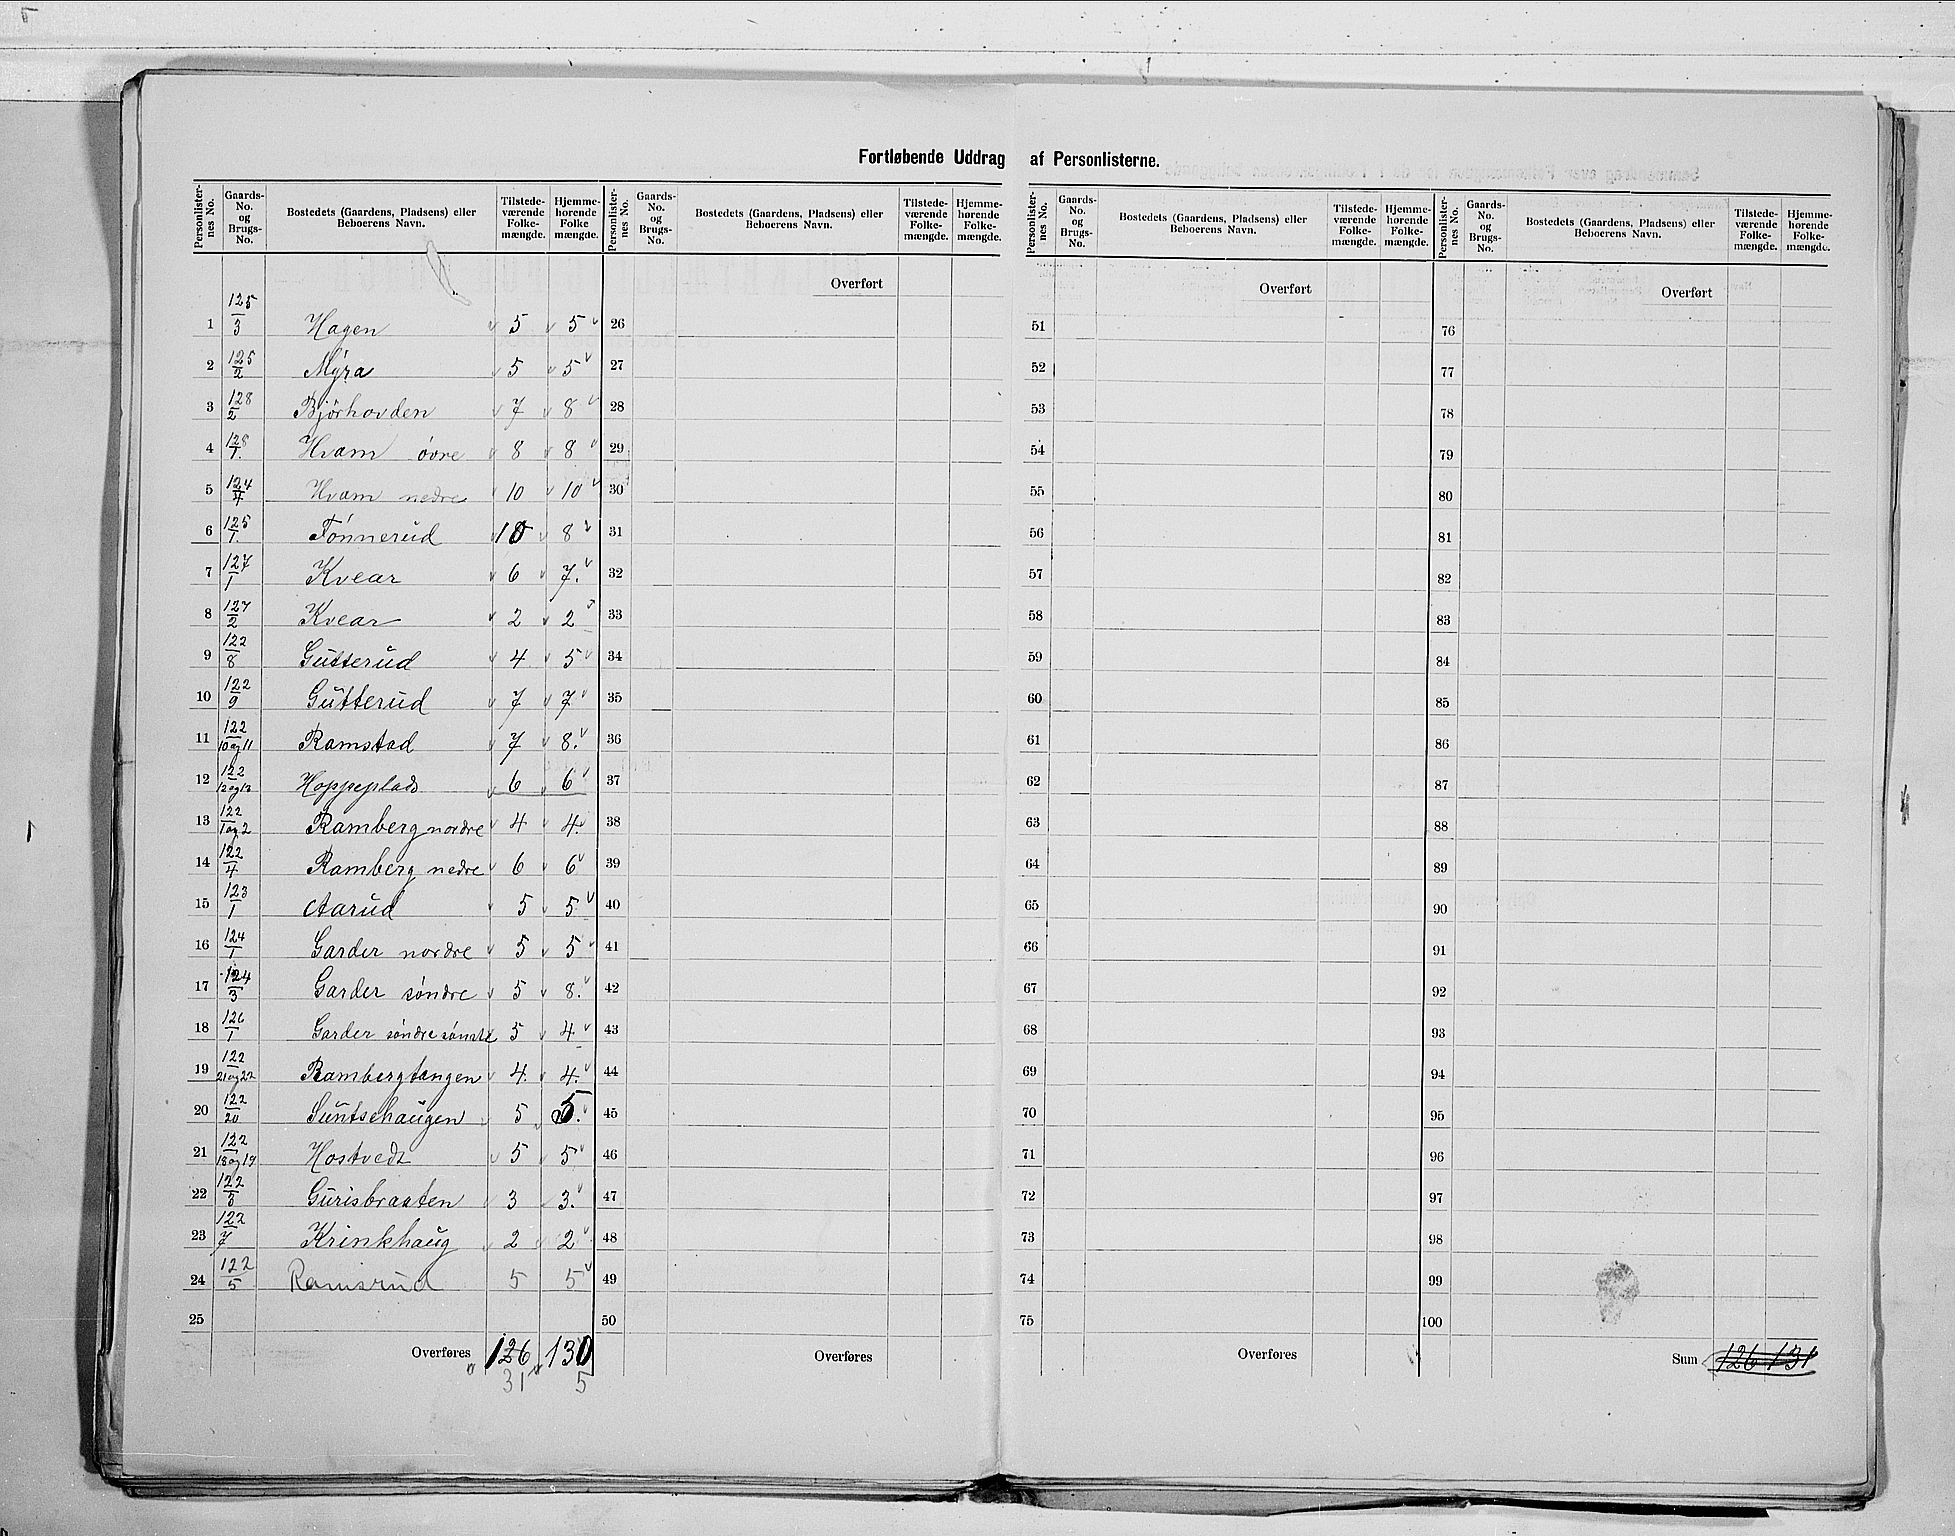 Fortløbende Uddrag af Personlisterne.
Personlister-nes No. | Gaards-No. og Brugs-No. | Bostedets (Gaardens, Pladsens) eller Beboerens Navn. | Tilstede-værende Folke-mængde. | Hjemme-hørende Folke mængde.
1 125/3 Hagen 5 5
2 125/2 Myra 5 5
3 128/2 Bjørhovden 7 8
4 128/1. Hvam øvre 8 8
5 124/4 Hvam nedre 10 10
6 125/1. Tønnerud 10 8
7 127/1 Kvear 6 7.
8 127/2 Kvear 2 2
9 122/8 Gutterud 4 5
10 122/9 Gutterud 7 7
11 122/10 og 11 Ramstad 7 8.
12 122/12 og 13 Hoppeplads 6 6
13 122/1 og 2 Ramberg nordre 4 4.
14 122/4 Ramberg nedre 6 6
15 123/1 Aarud 5 5
16 124/1 Garder nordre 5 5
17 124/3 Garder søndre 5 8.
18 126/1 Garder søndre sønste 5 4
19 122/21 og 22 Rambergtangen 4. 4.
20 122/20 Suntsehaugen 5 5.
21 122/18 og 19 Hostvedt 5 5
22 122/3 Gurisbraaten 3 3.
23 122/7 Krinkhaug 2 2
24 122/5 Ramsrud 5 5
25
Overføres 126 130
31 5
Personlister-nes No. | Gaards-No. og Brugs-No. | Bostedets (Gaardens, Pladsens) eller Beboerens Navn. | Tilstede-værende Folke-mængde. | Hjemme-hørende Folke-mængde.
Overført
26
27
28
29
30
31
32
33
34
35
36
37
38
39
40
41
42
43
44
45
46
47
48
49
50
Overføres
Personlister-nes No. | Gaards-No. og Brugs-No. | Bostedets (Gaardens, Pladsens) eller Beboerens Navn. | Tilstede-værende Folke-mængde. | Hjemme-hørende Folke-mængde.
Overført
51
52
53
54
55
56
57
58
59
60
61
62
63
64
65
66
67
68
69
70
71
72
73
74
75
Overføres
Personlister-nes No. | Gaards-No. og Brugs-No. | Bostedets (Gaardens, Pladsens) eller Beboerens Navn. | Tilstede-værende Folke-mængde. | Hjemme-hørende Folke-mængde.
Overført
76
77
78
79
80
81
82
83
84
85
86
87
88
89
90
91
92
93
94
95
96
97
98
99
100
Sum 126 131